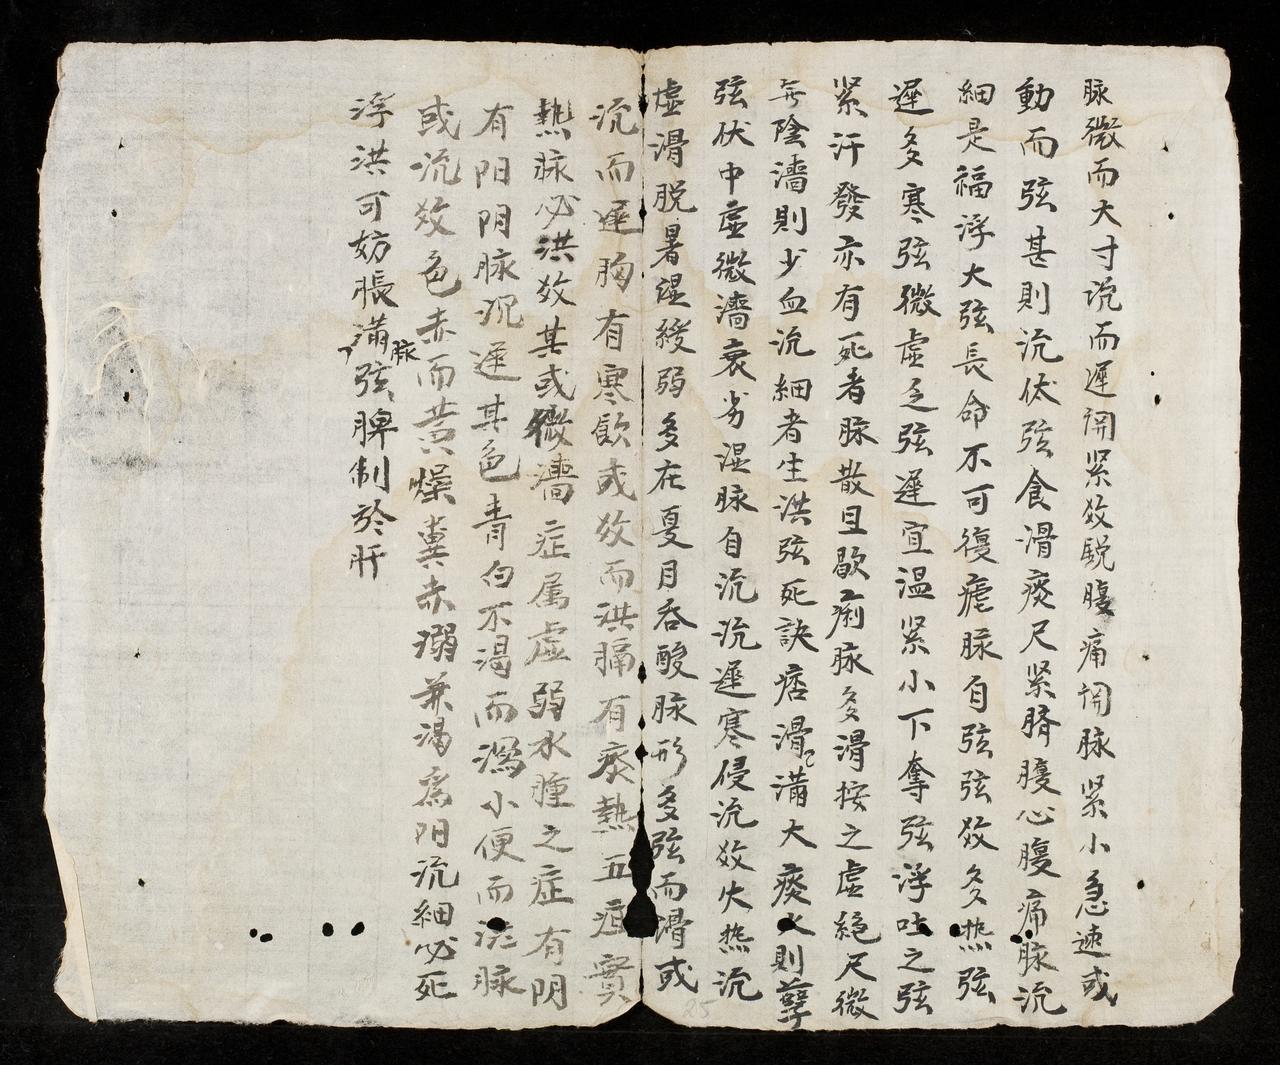 脉微而大寸沉而遲関紧效鋭腹痛関脉紧小急速或
動而弦甚則沉伏弦食滑痰尺紧臍腹心腹痛脉沉
細是福浮大弦長命不可復瘧脉自弦弦效多热弦
遲多寒弦微虚乏弦遲宜温紧小下奪弦浮吐之弦
紧汗發亦有死者脉散且歇痢脉多滑按之虚絕尺微
無陰濇則少血沉細者生洪弦死訣痞滑滿大痰火則孽
弦伏中虚微濇衰劣湿脉自沉沉遲寒侵沉效火热沉
虚滑脱暑湿緩弱多在夏月吞酸脉形多弦而滑或
沉而遲胸有寒飲或效而洪膈有痰熱五疸實
熱脉必洪效其或微濇症属虚弱水腫之症有阴
有阳阴脉沉遲其色青白不渴而瀉小便而澁脉
或沉效色赤而黄燥糞赤溺兼渴為阳沉細必死
浮洪可妨脹滿脉弦脾制於肝
25